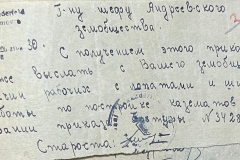 Г-ну шефу Андреевского
земобщества.
30. С получением этого прика
же выслать с Вашего земобщ
чии рабочих с лопатами и ши
боты по постройке казематов
вании приказа
туры № 3428
Староста